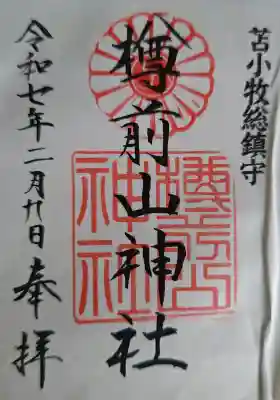 苫小牧総鎮守
樽前山神社
樽前山神社
令和七年二月廿日奉拝